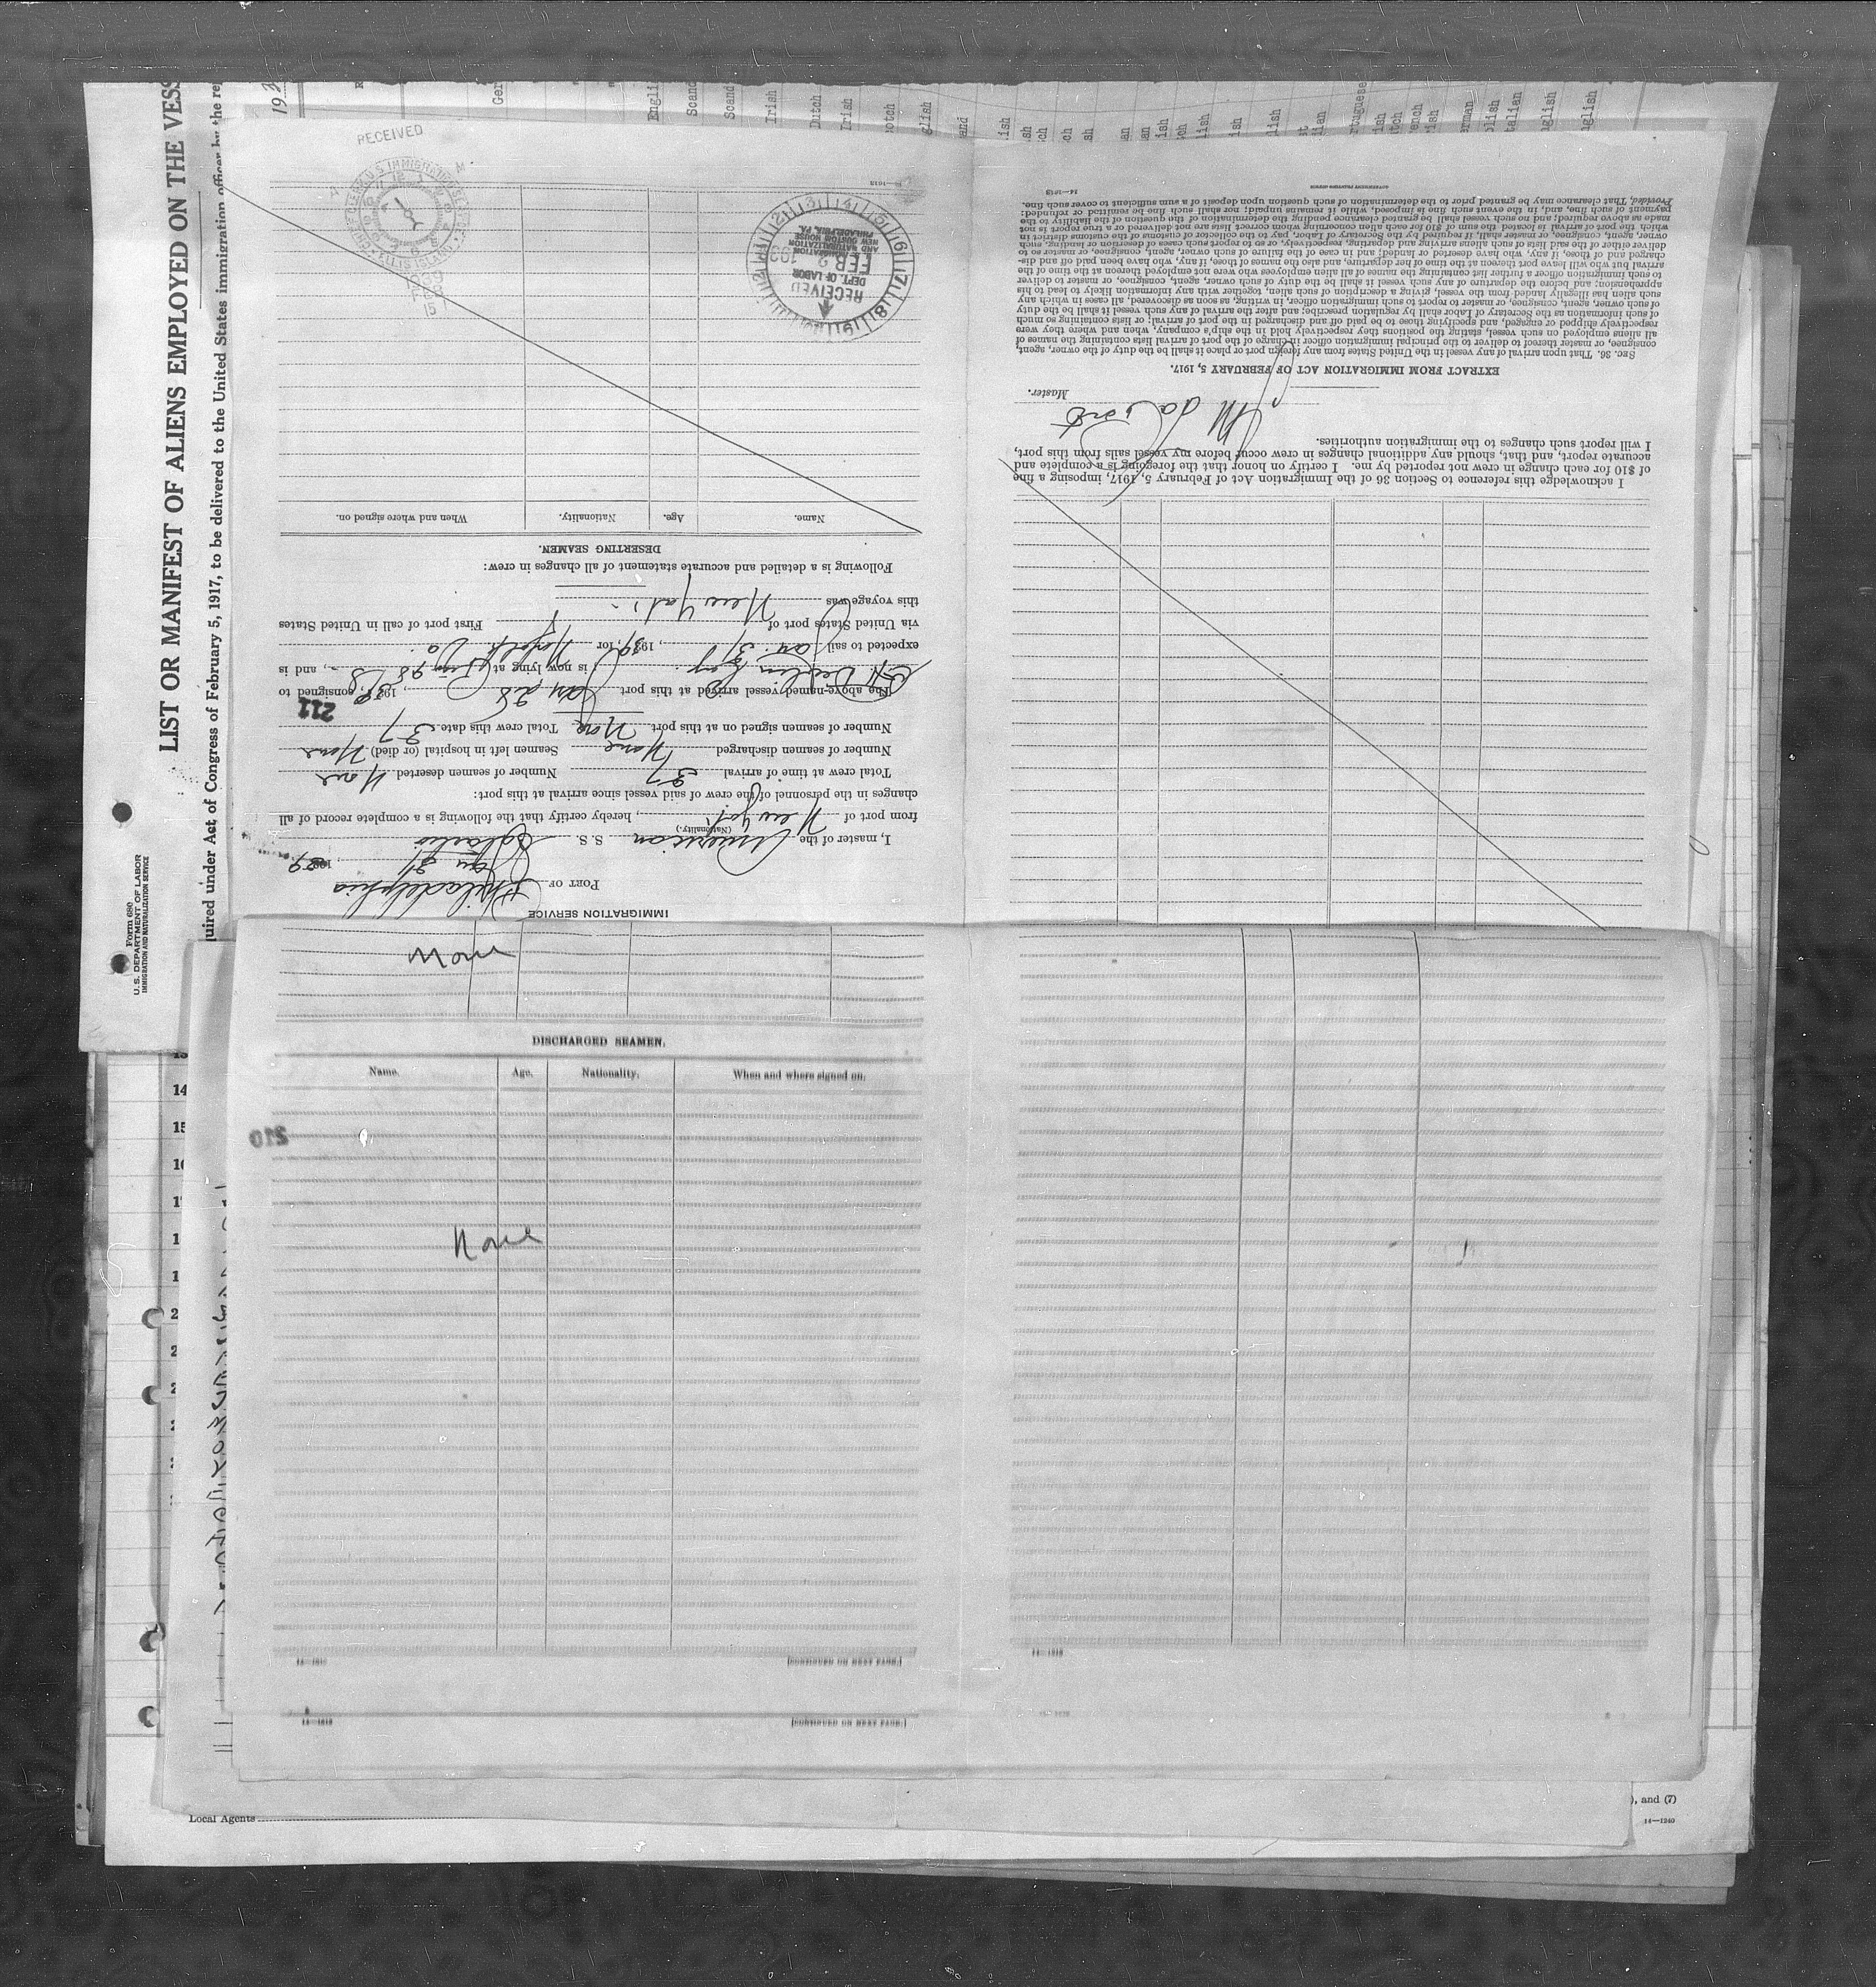 LIST OR MANIFEST OF ALIENS EMPLOYED ON THE VESS
quired under Act of Congress of February 5, 1917, to be delivered to the United States immigration officer by the re
Form 680
U. S. DEPARTMENT OF LABOR
IMMIGRATION AND NATURALIZATION SERVICE
IMMIGRATION SERVICE
PORT OF Philadelphia
Jan 31, 1939
I, master of the American S. S.
(Nationality.)
from port of New York, hereby certify that the following is a complete record of all
changes in the personnel of the crew of said vessel since arrival at this port:
Total crew at time of arrival 37 Number of seamen deserted None
Number of seamen discharged None Seamen left in hospital (or died) None
Number of seamen signed on at this port None Total crew this date 37
211
The above-named vessel arrived at this port Jan 28, 1939, consigned to
is now lying at Pier 98, and is
expected to sail Jan 31, 1939, for Norfolk Va.
via United States port of First port of call in United States
this voyage was New York
Following is a detailed and accurate statement of all changes in crew:
DESERTING SEAMEN.
Name. Age. Nationality. When and where signed on.
RECEIVED
DEPT. OF LABOR
FEB 2 193
IMMIGRATION
AND NATURALIZATION
NEW CUSTOM HOUSE
PHILADELPHIA, PA.
RECEIVED
U.S. IMMIGRATION SERVICE
ELLIS ISLAND
I acknowledge this reference to Section 36 of the Immigration Act of February 5, 1917, imposing a fine
of $10 for each change in crew not reported by me. I certify on honor that the foregoing is a complete and
accurate report, and that, should any additional changes in crew occur before my vessel sails from this port,
I will report such changes to the immigration authorities.
Master.
EXTRACT FROM IMMIGRATION ACT OF FEBRUARY 5, 1917.
Sec. 36. That upon arrival of any vessel in the United States from any foreign port or place it shall be the duty of the owner, agent,
consignee, or master thereof to deliver to the principal immigration officer in charge of the port of arrival lists containing the names of
all aliens employed on such vessel, stating the positions they respectively hold in the ship's company, when and where they were
respectively shipped or engaged, and specifying those to be paid off and discharged in the port of arrival; or lists containing so much
of such information as the Secretary of Labor shall by regulation prescribe; and after the arrival of any such vessel it shall be the duty
of such owner, agent, consignee, or master to report to such immigration officer, in writing, as soon as discovered, all cases in which any
such alien has illegally landed from the vessel, giving a description of such alien, together with any information likely to lead to his
apprehension; and before the departure of any such vessel it shall be the duty of such owner, agent, consignee, or master to deliver
to such immigration officer a further list containing the names of all alien employees who were not employed thereon at the time of the
arrival but who will leave port thereon at the time of her departure, and also the names of those, if any, who have been paid off and dis-
charged and of those, if any, who have deserted or landed; and in case of the failure of such owner, agent, consignee, or master so to
deliver either of the said lists of such aliens arriving and departing, respectively, or so to report such cases of desertion or landing, such
owner, agent, consignee, or master shall, if required by the Secretary of Labor, pay to the collector of customs of the customs district in
which the port of arrival is located the sum of $10 for each alien concerning whom correct lists are not delivered or a true report is not
made as above required; and no such vessel shall be granted clearance pending the determination of the question of the liability to the
payment of such fine, and, in the event such fine is imposed, while it remains unpaid; nor shall such fine be remitted or refunded:
Provided, That clearance may be granted prior to the determination of such question upon deposit of a sum sufficient to cover such fine.
14—1613
GOVERNMENT PRINTING OFFICE
None
DISCHARGED SEAMEN.
Name. Age. Nationality. When and where signed on.
210
None
14—1613 [CONTINUED ON NEXT PAGE.]
14—1613
14—1613 [CONTINUED ON NEXT PAGE.]
Local Agents
), and (7)
14—1240